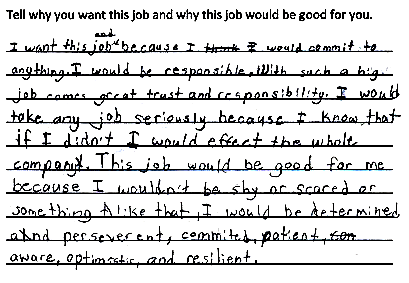 Tell why you want this job and why this job would be good for you.
and
I want this job because I think I would commit to
anything. I would be responsible. With such a big
job comes great trust and responsibility. I would
take any job seriously because I know that
if I didn't I would effect the whole
company. This job would be good for me
because I wouldn't be shy or scared or
something like that, I would be determined
and perseverent, commited, patient,
aware, optimistic, and resilient.